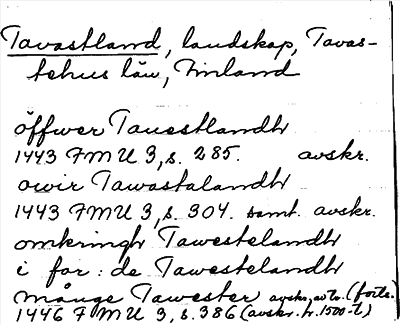 Tavastland, landskap, Tavas-
tehus län, Finland
öffwer Tauestlandh
1443 FMU 3, s. 285. avskr.
owir Tawastalandh
1443 FMU 3, s. 304. samt. avskr.
omkringh Tawestelandh
i for: de Tawestelandh
månge Tawester avskr. (forts.)
1446 FMU 3, s. 386 (avskr. fr. 1500-t)